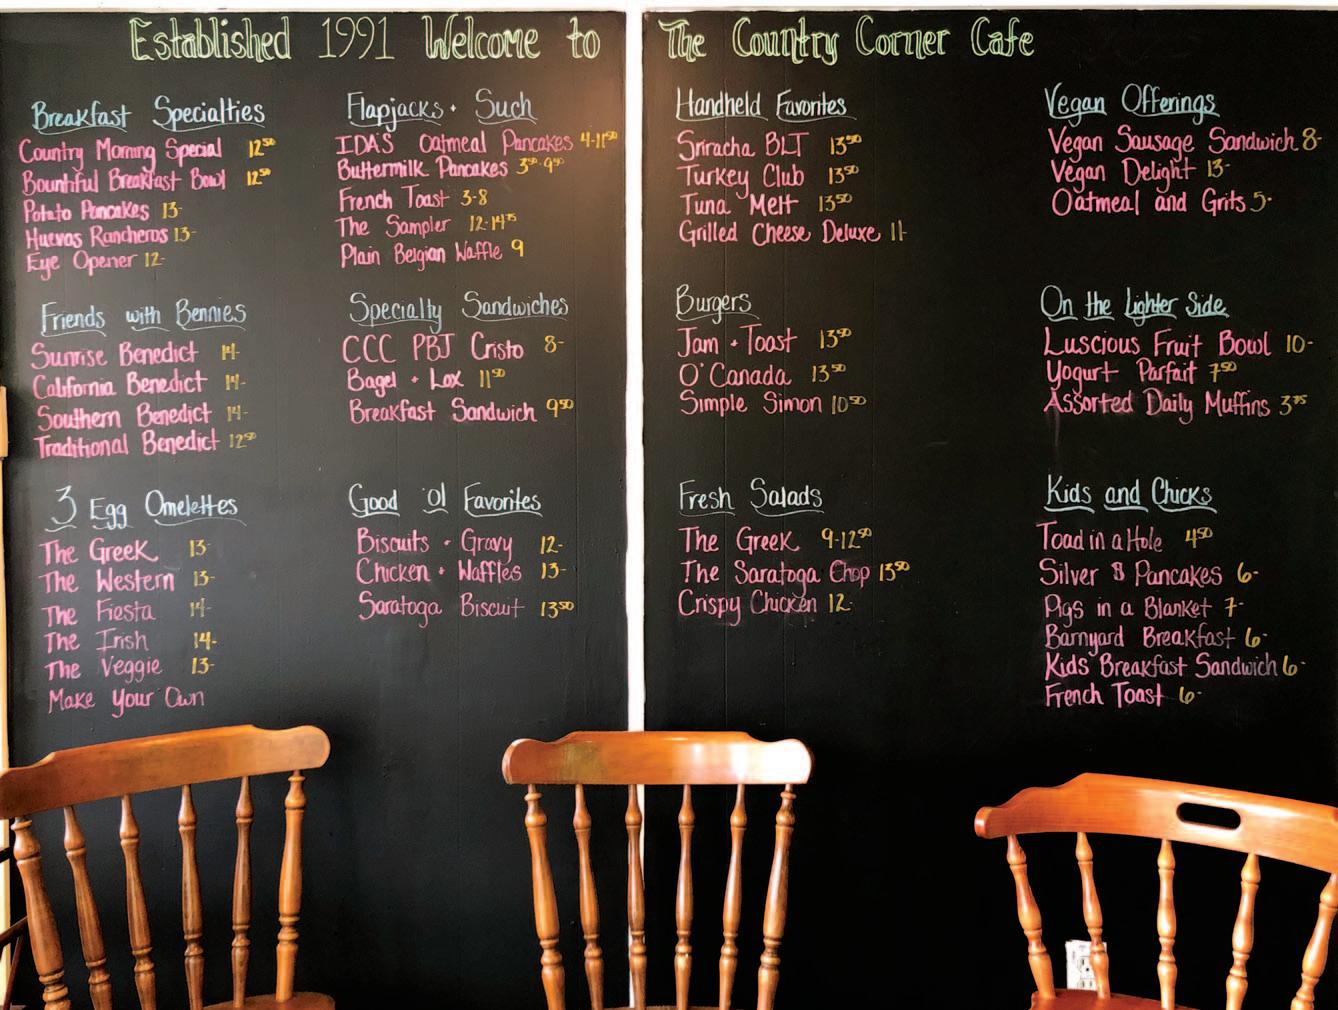 Established 1991 Welcome to The Country Corner Cafe
Breakfast Specialties
Country Morning Special 12⁵⁰
Bountiful Breakfast Bowl 12⁵⁰
Potato Pancakes 13-
Huevos Rancheros 13-
Eye Opener 12-
Friends with Bennies
Sunrise Benedict 14-
California Benedict 14-
Southern Benedict 14-
Traditional Benedict 12⁵⁰
3 Egg Omelettes
The Greek 13-
The Western 13-
The Fiesta 14-
The Irish 14-
The Veggie 13-
Make Your Own
Flapjacks + Such
IDA'S Oatmeal Pancakes 4-11⁵⁰
Buttermilk Pancakes 3⁵⁰-9⁵⁰
French Toast 3-8
The Sampler 12-14⁷⁵
Plain Belgian Waffle 9
Specialty Sandwiches
CCC PBJ Cristo 8-
Bagel + Lox 11⁵⁰
Breakfast Sandwich 9⁵⁰
Good 'ol Favorites
Biscuits + Gravy 12-
Chicken + Waffles 13-
Saratoga Biscuit 13⁵⁰
Handheld Favorites
Sriracha BLT 13⁵⁰
Turkey Club 13⁵⁰
Tuna Melt 13⁵⁰
Grilled Cheese Deluxe 11-
Burgers
Jam + Toast 13⁵⁰
O'Canada 13⁵⁰
Simple Simon 10⁵⁰
Fresh Salads
The Greek 9-12⁵⁰
The Saratoga Chop 13⁵⁰
Crispy Chicken 12-
Vegan Offerings
Vegan Sausage Sandwich 8-
Vegan Delight 13-
Oatmeal and Grits 5-
On the Lighter Side
Luscious Fruit Bowl 10-
Yogurt Parfait 7⁵⁰
Assorted Daily Muffins 3⁷⁵
Kids and Chicks
Toad in a Hole 4⁵⁰
Silver $ Pancakes 6-
Pigs in a Blanket 7-
Barnyard Breakfast 6-
Kids' Breakfast Sandwich 6-
French Toast 6-